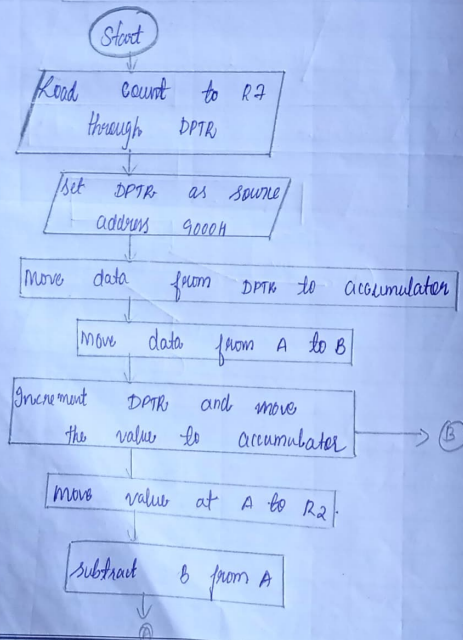 Start
Load count to R7
through DPTR
set DPTR as source
address 9000H
Move data from DPTR to accumulator
Move data from A to B
Increment DPTR and move
the value to accumulator
B
Move value at A to R2.
subtract B from A
A